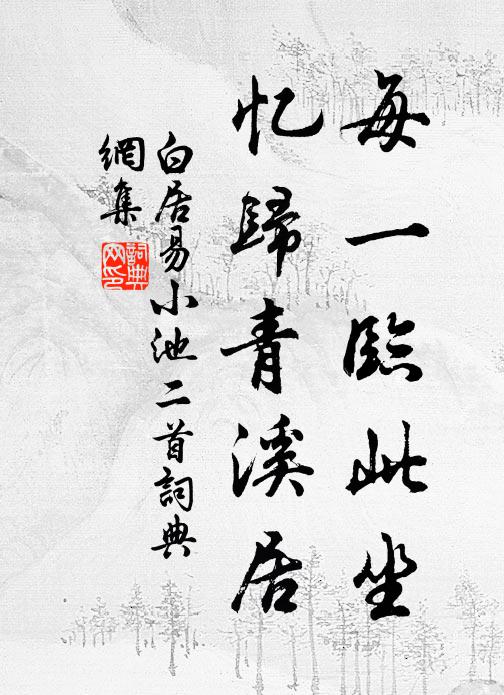 每一臨此坐
忆歸青溪居
白居易小池二首詞典
網集
詞典
网印